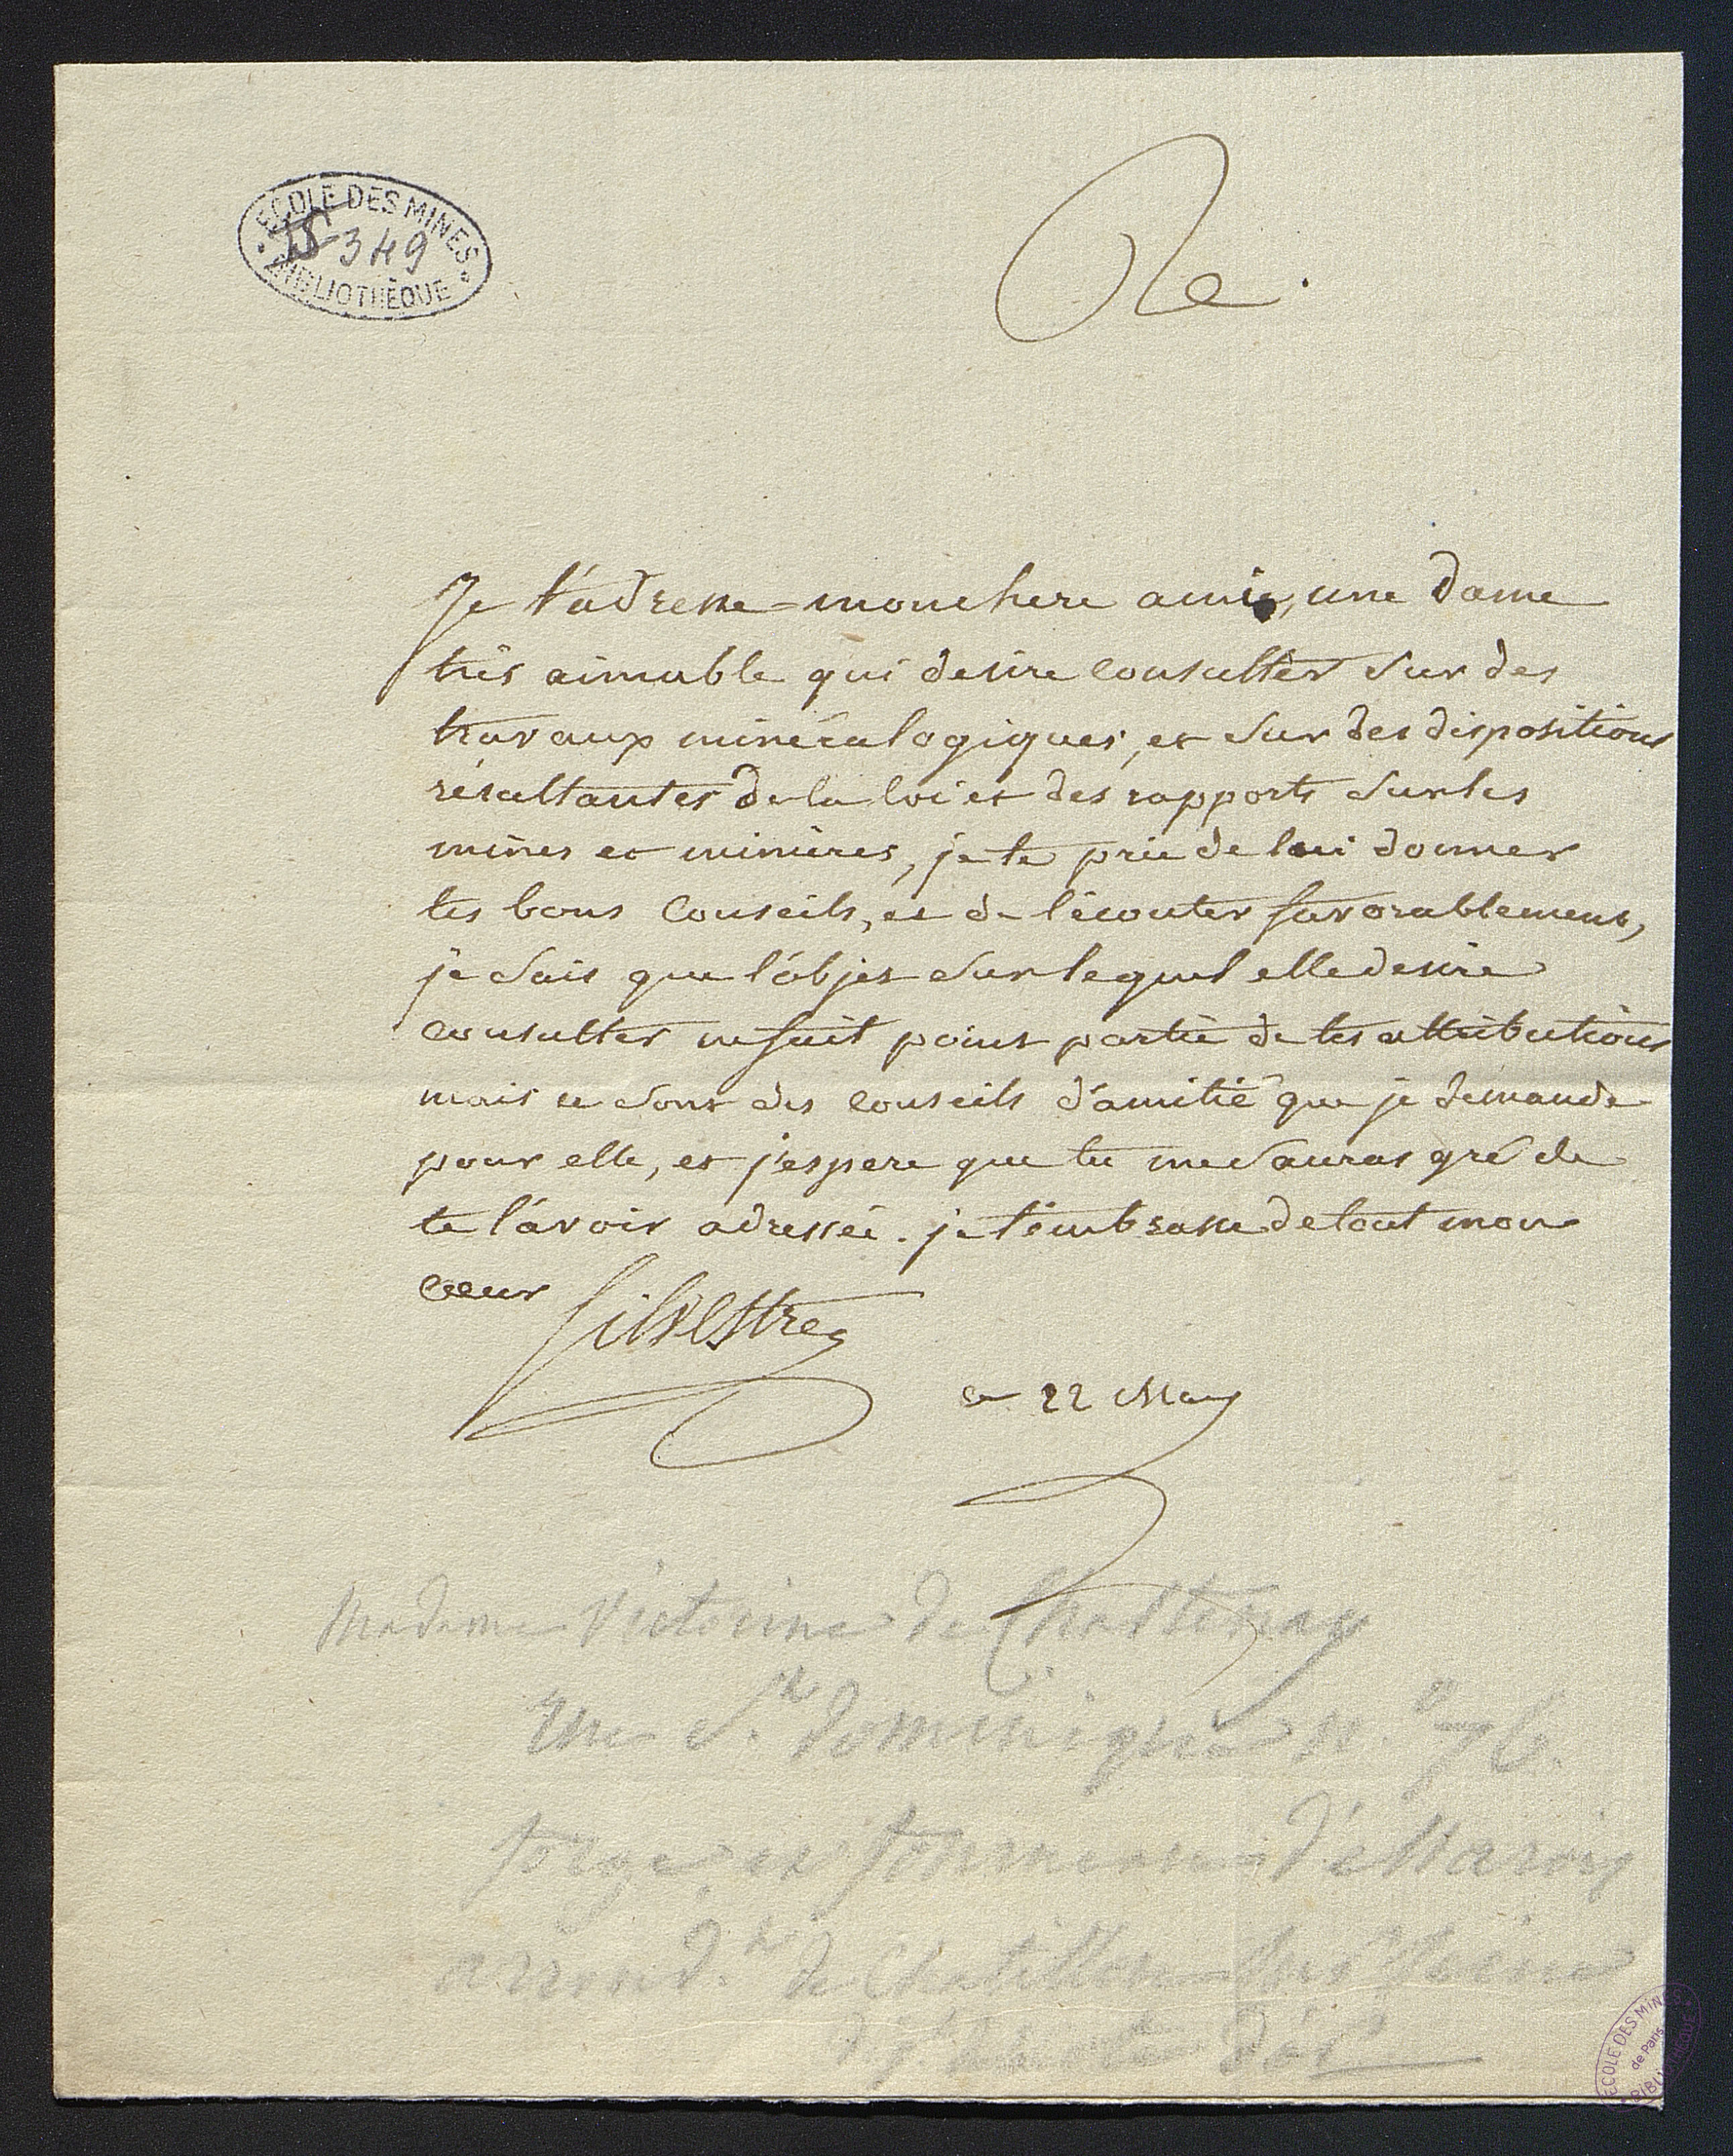 ECOLE DES MINES
349
BIBLIOTHÈQUE
Je t'adresse mon chere ami, une dame
très aimable qui desire consulter sur des
travaux minéralogiques, et sur des dispositions
résultantes de la loi et des rapports sur les
mines et minières, je te prie de lui donner
tes bons conseils, et de l'écouter favorablement,
je sais que l'objet sur lequel elle desire
consulter ne fait point partie de tes attributions
mais ce sont des conseils d'amitié que je demande
pour elle, et j'espere que tu me sauras gré de
te l'avoir adressée. je t'embrasse de tout mon
coeur Silvestre
ce 22 May
Madame Victorine de Chastenay
rue St. dominique n.° 76.
forge et fourneau d'essarois
arrond.t de Chatillon sur Seine
dept de la côte d'or
ECOLE DES MINES
de Paris
BIBLIOTHÈQUE